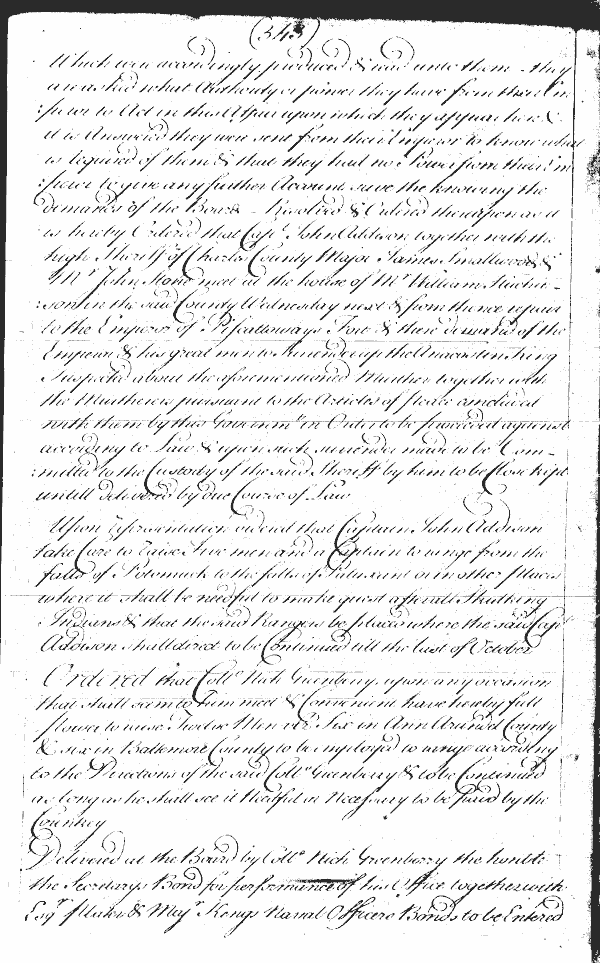 (343)
Which were accordingly produced & read unto them – they
are asked what Authority or power they have from their Em
:peror to Act in this Affair upon which they appear here &
it is Answered they were sent from their Emperor to know what
is required of them & that they had no Power from their Em
:peror to give any further Account save the knowing the
demands of the Board – Resolved & Ordered thereupon and it
is hereby Ordered that Capt. John Addison together with the
high Sheriff of Charles County Major James Smallwood &
Mr. John Stone meet at the house of Mr William Hutchi-
:son in the said County Wednesday next & from thence repair
to the Emperor of Piscattoways Fort & there demand of the
Emperor & his great men to Surrender up the Anacostin King
Suspected about the aforementioned Murther together with
the Murtherers pursuant to the Articles of Peace concluded
with them by this Governmt. in Order to be proceeded against
according to Law & upon such surrender made to be Com-
:mitted to the Custody of the said Sheriff by him to be Close kept
untill delivered by due Course of Law
Upon representation ordered that Captain John Addison
take Care to raise Five men and a Captain to range from the
falls of Potomack to the falls of Patuxent or in other places
where it shall be needful to make quest after all Skulking
Indians & that the said Rangers be placed where the said Capt
Addison shall direct to be Continued till the last of October
Ordered that Collo. Nich Greenberry upon any occasion
that shall seem to him meet & Convenient have hereby full
Power to raise Twelve Men vizt Six in Ann Arundel County
& six in Baltemore County to be imployed to range according
to the Directions of the said Collo Greenberry & to be Continued
as long as he shall see it Needful or Necessary to be paid by the
Countrey
Delivered at the Board by Collo Nich Greenberry the honble
the Secretarys Bond for performance of his Office together with
Esqr Plater & Majr Kings Naval Officers Bonds to be Entered